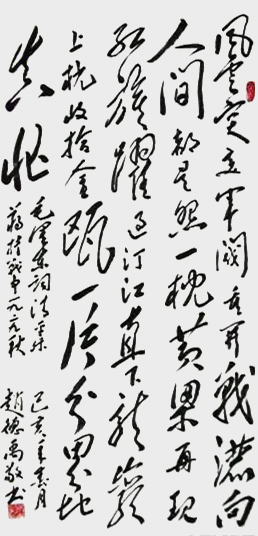 風雲突变军閥重开戰灑向
人间都是怨一枕黄粱再现
红旗躍過汀江直下龙巖
上杭收拾金甌一片分田分地
真忙 毛澤东词清平乐
蒋桂战争一九二九秋
己亥年春月
趙德禹敬书